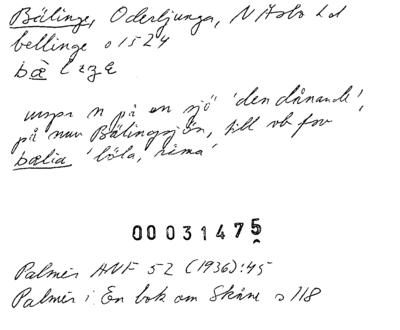 Bälinge, Oderljunga, N Åsbo hd
bellinge o 1524
bæ lızɛ
urspr n på en sjö 'den dånande',
på nuv Bälingesjön, till vb fsv
bælia 'böla, råma'
00031475
Palmér ANF 52 (1936):45
Palmér i En bok om Skåne s 118